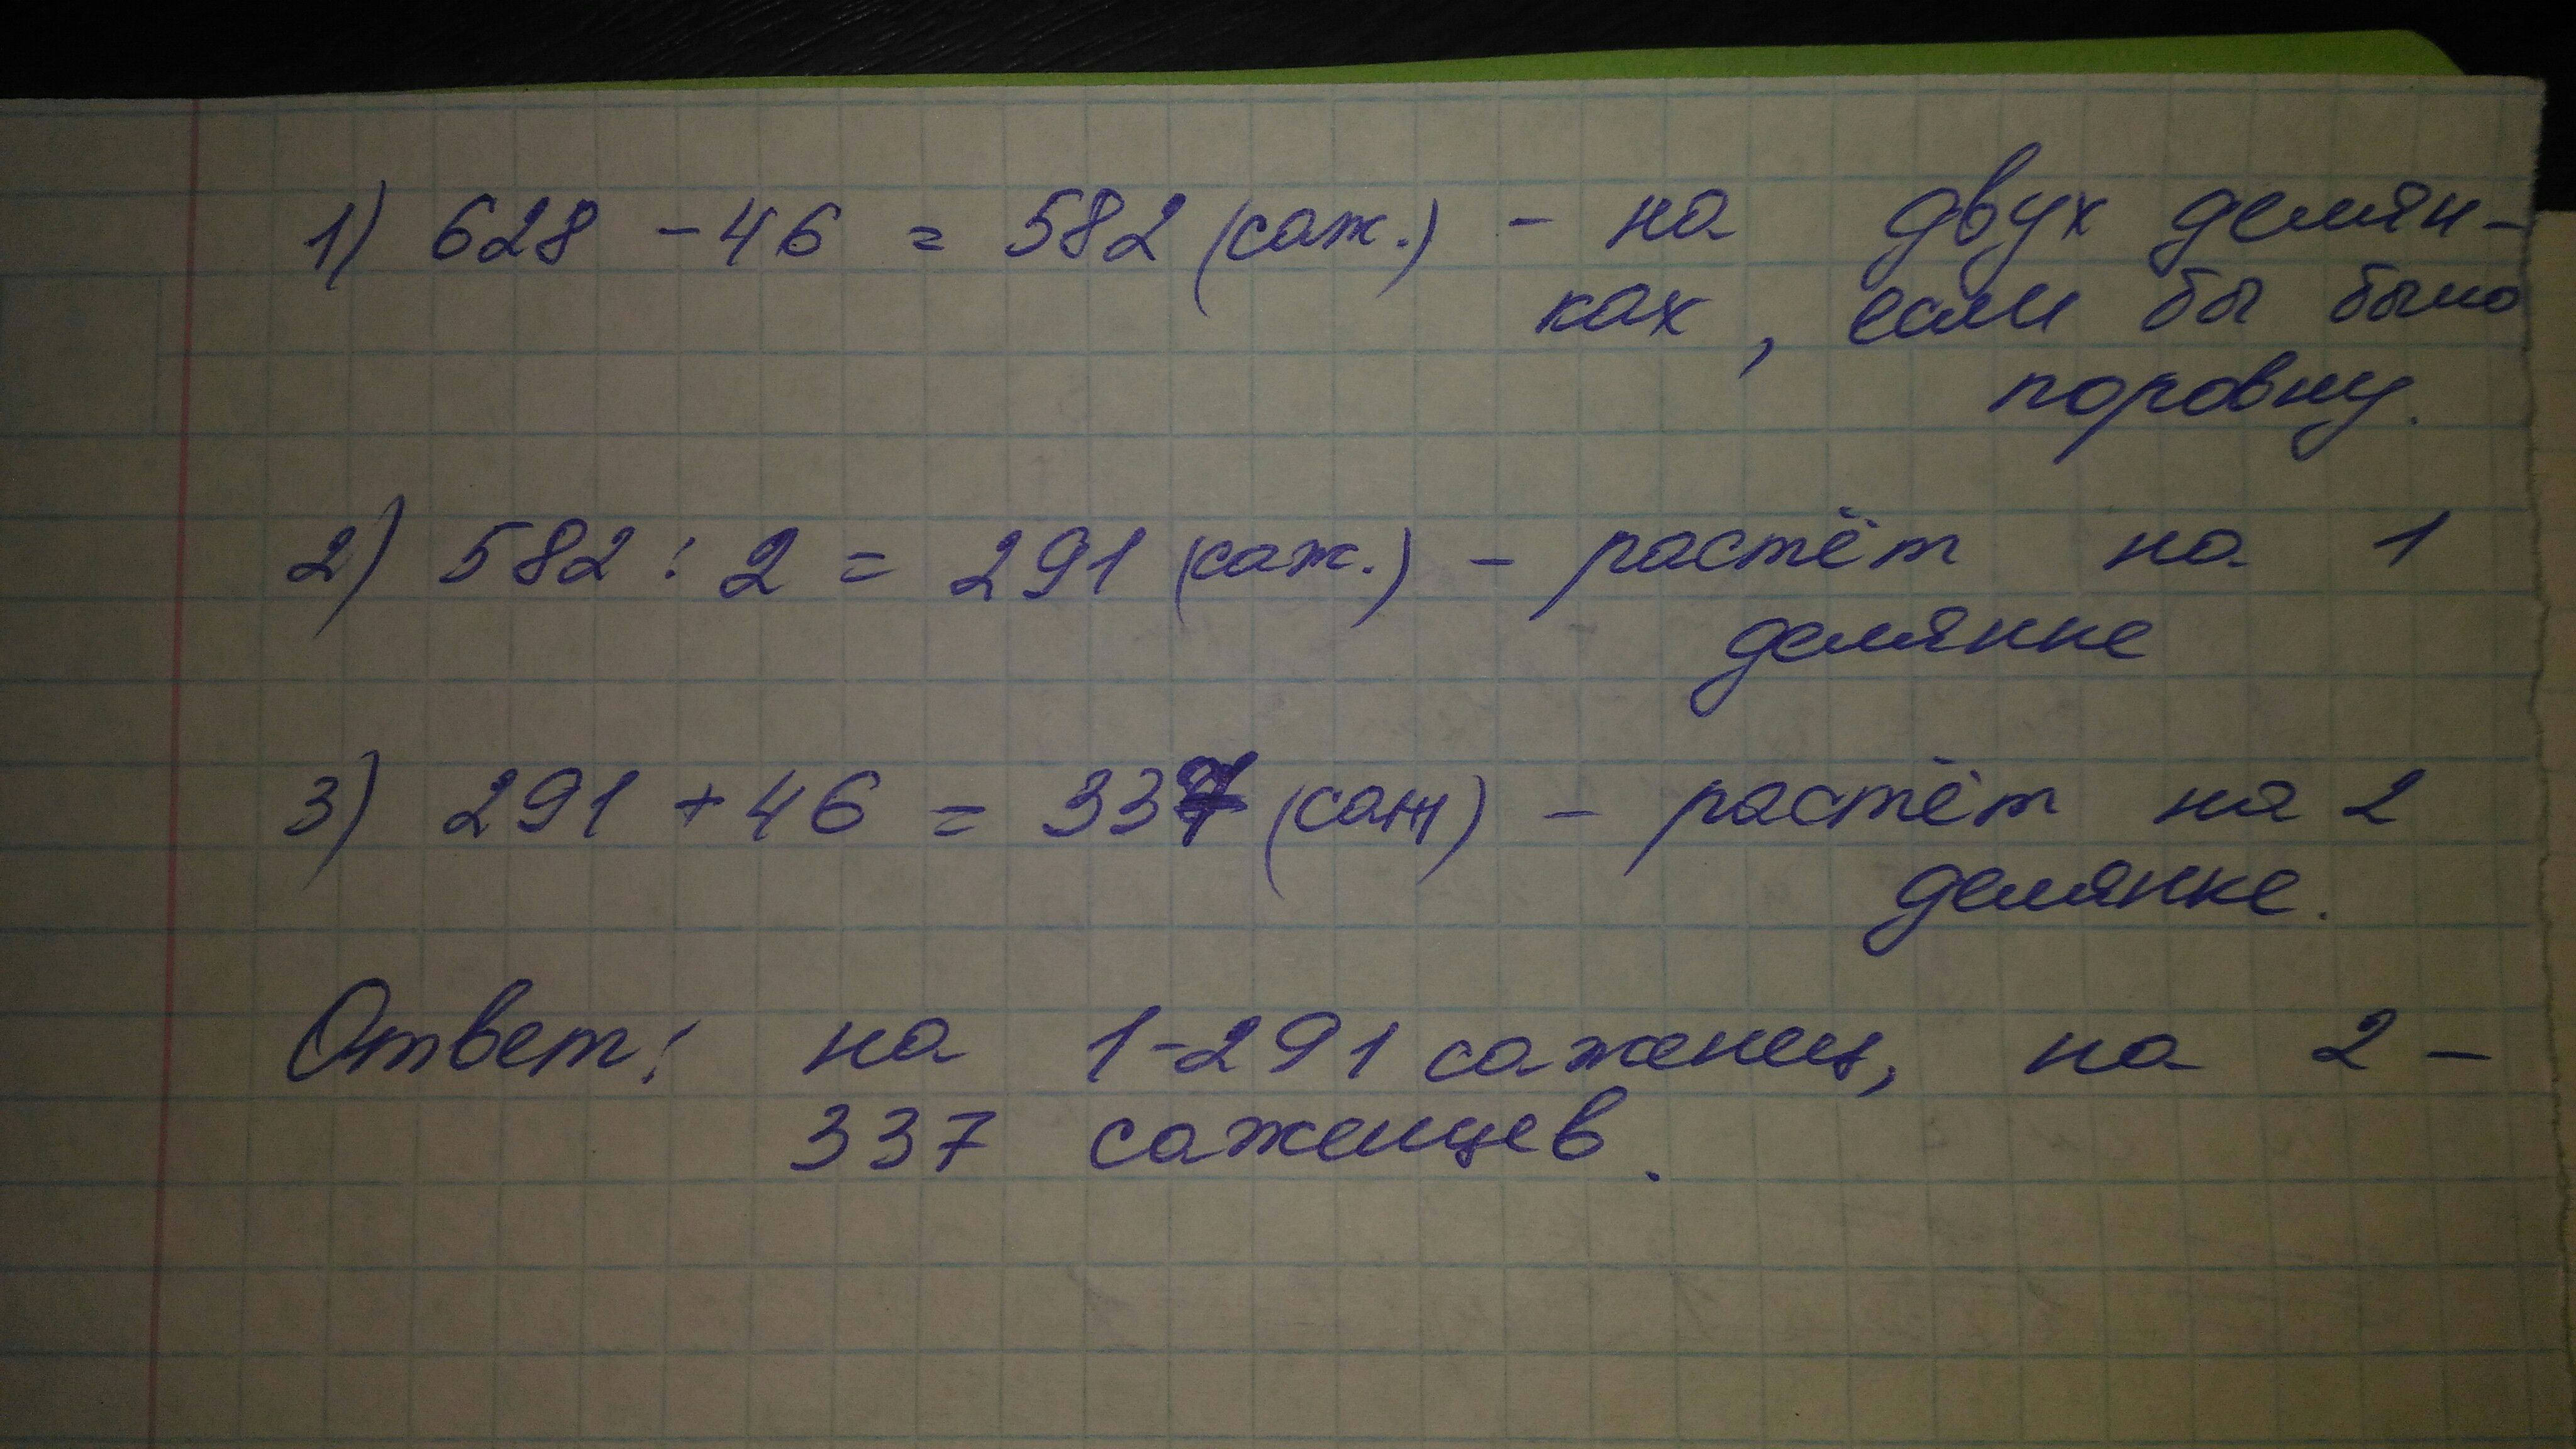 1) 628 - 46 = 582 (саж.) - на двух делян-
ках, если бы было
поровну.
2) 582 : 2 = 291 (саж.) - растёт на 1
делянке
3) 291 + 46 = 337 (саж) - растёт на 2
делянке.
Ответ: на 1-291 саженец, на 2 -
337 саженцев.